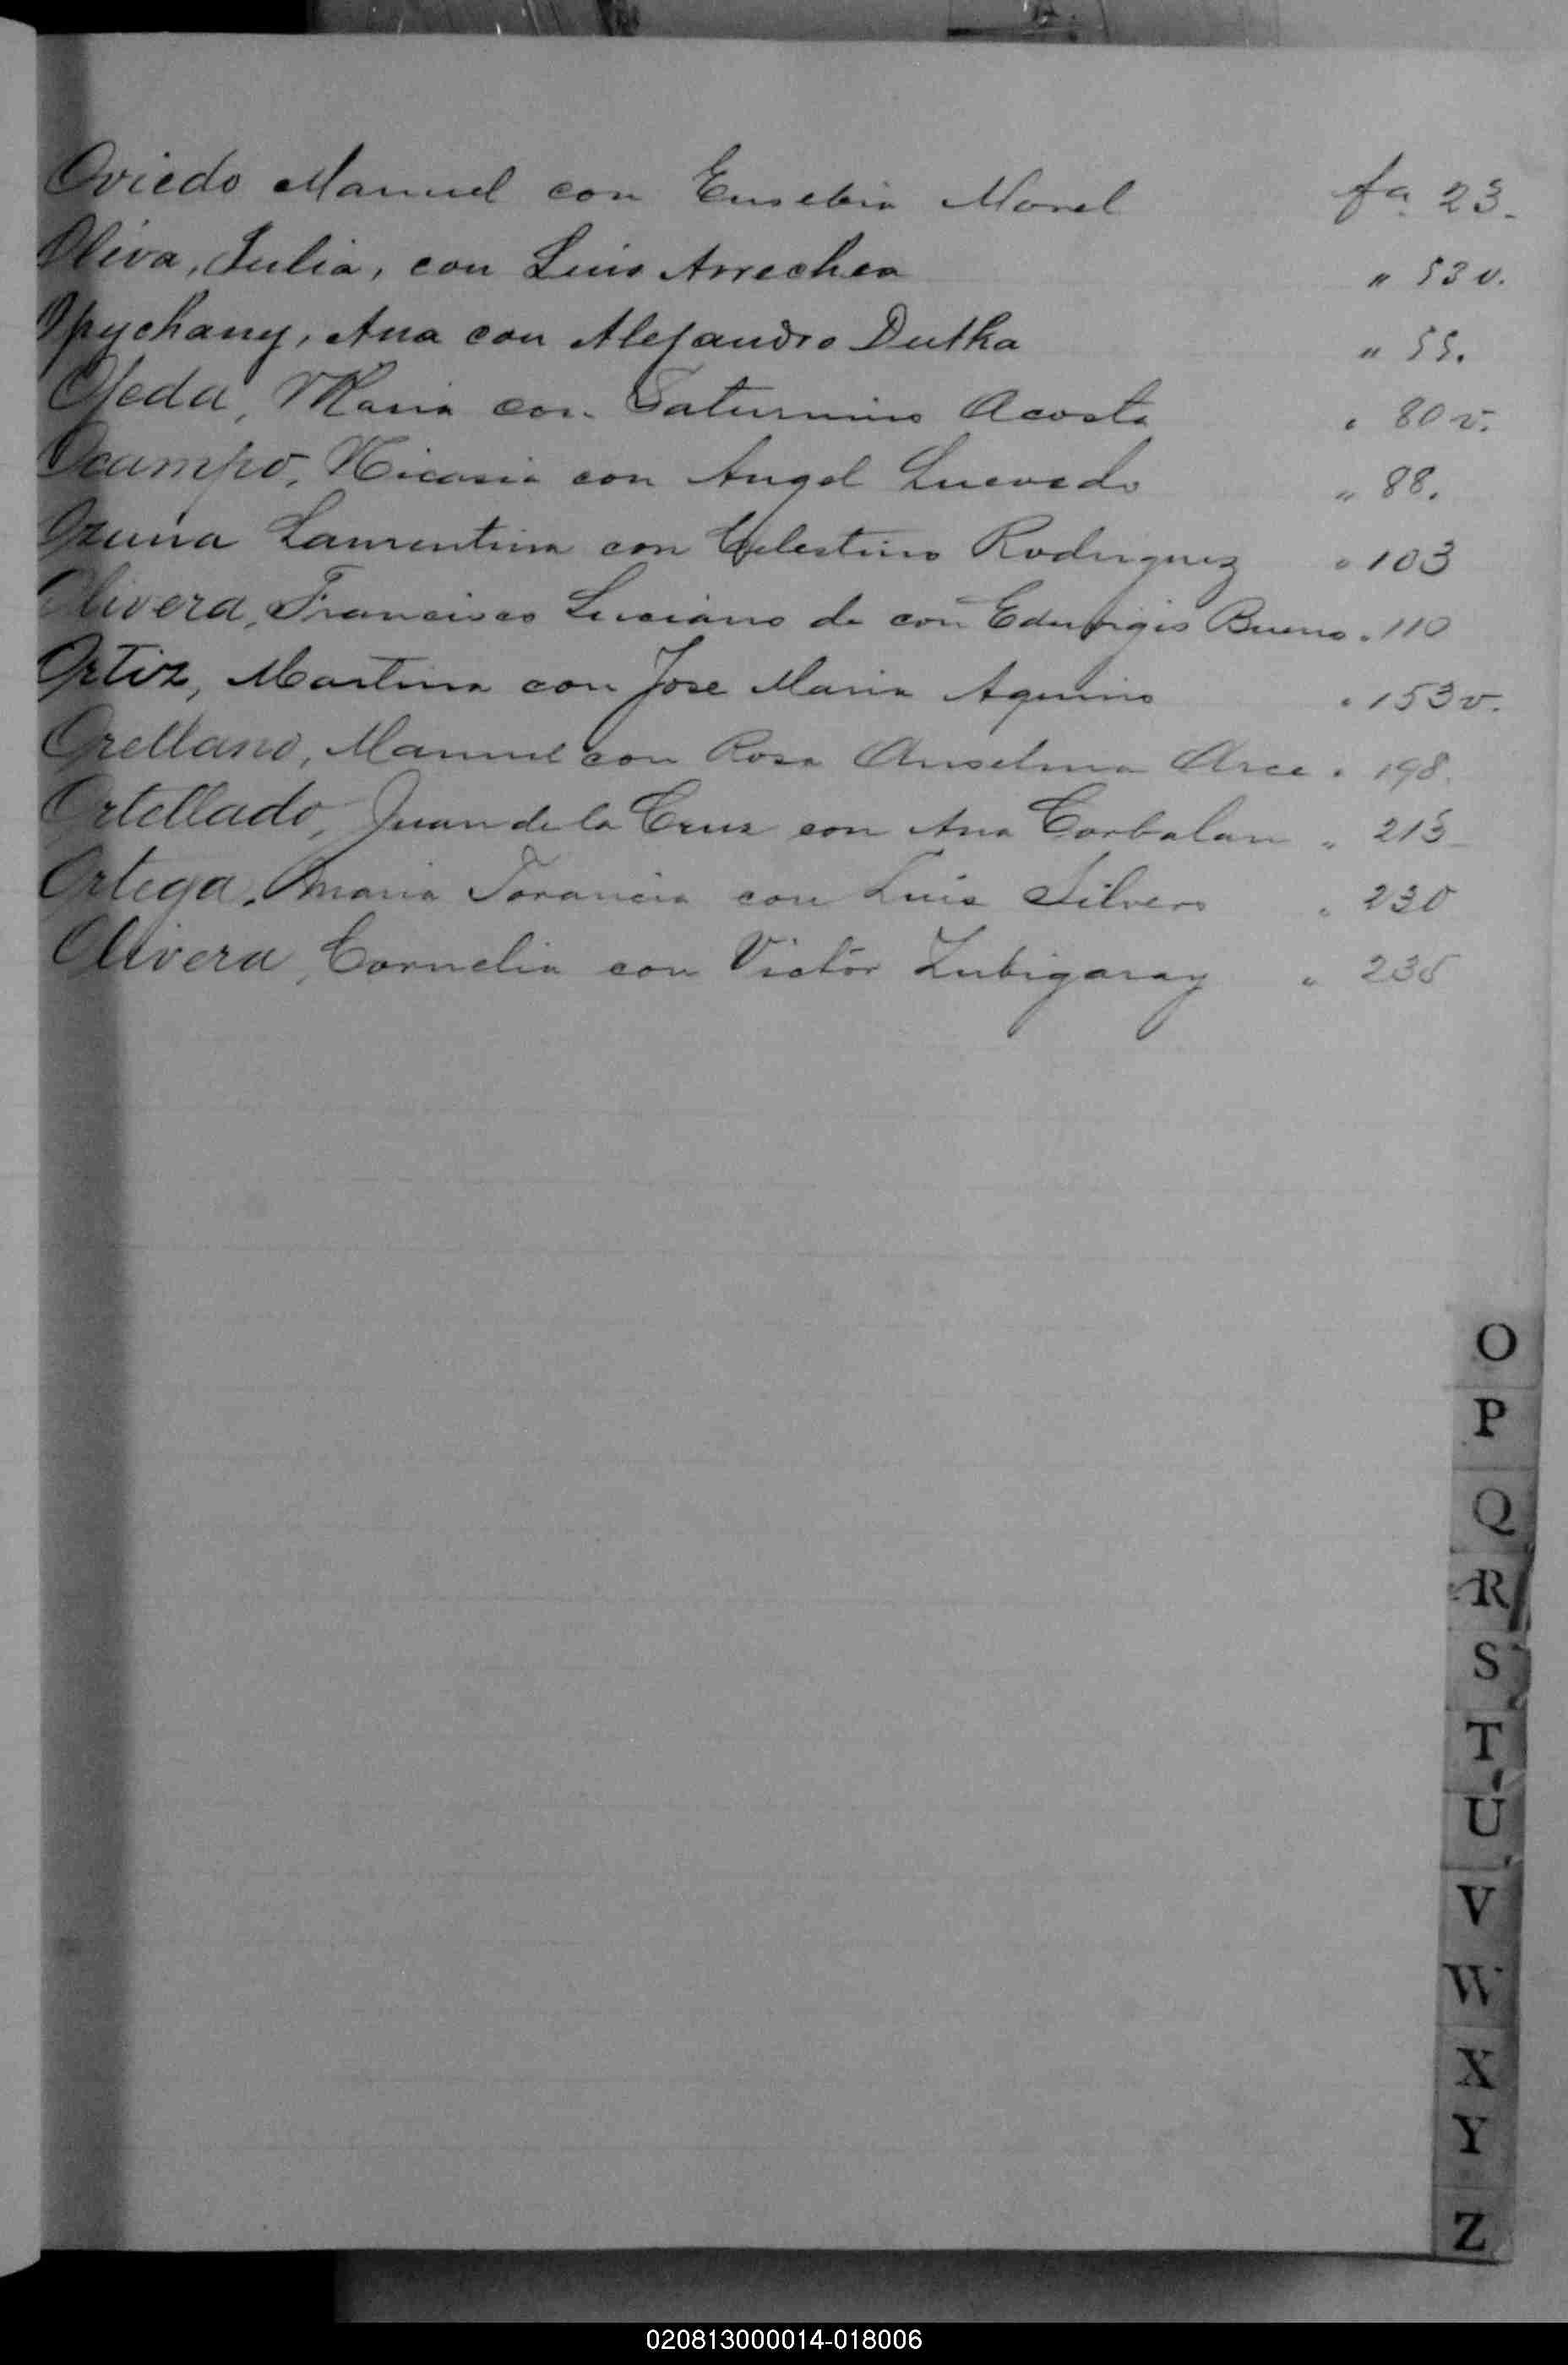 Oviedo Manuel con Eusebia Morel fa. 23.
Oliva, Julia, con Luis Arrechea " 53 v.
Opychany, Ana con Alejandro Dutka " 55.
Ojeda, Maria con Saturnino Acosta " 80 v.
Ocampo, Nicasia con Angel Luevedo " 88.
Ozuna Laurentina con Celestino Rodriguez " 103
Olivera, Francisco Luciano de con Eduvigis Bueno " 110
Ortiz, Martina con Jose Maria Aquino " 153 v.
Orellano, Manuel con Rosa Anselma Arce " 198.
Ortellado, Juan de la Cruz con Ana Corbalan " 215
Ortega, Maria con Luis Silvero " 230
Olivera, Cornelia con Victor Zubigaray " 235
O
P
Q
R
S
T
U
V
W
X
Y
Z
020813000014-018006